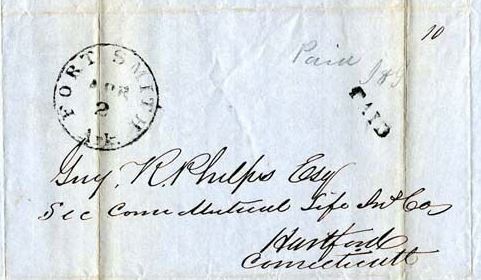 10
Paid
PAID
FORT SMITH
APR
2
Guy. R. Phelps Esq
Sec Conn Mutual Life Ins Co
Hartford
Connecticutt